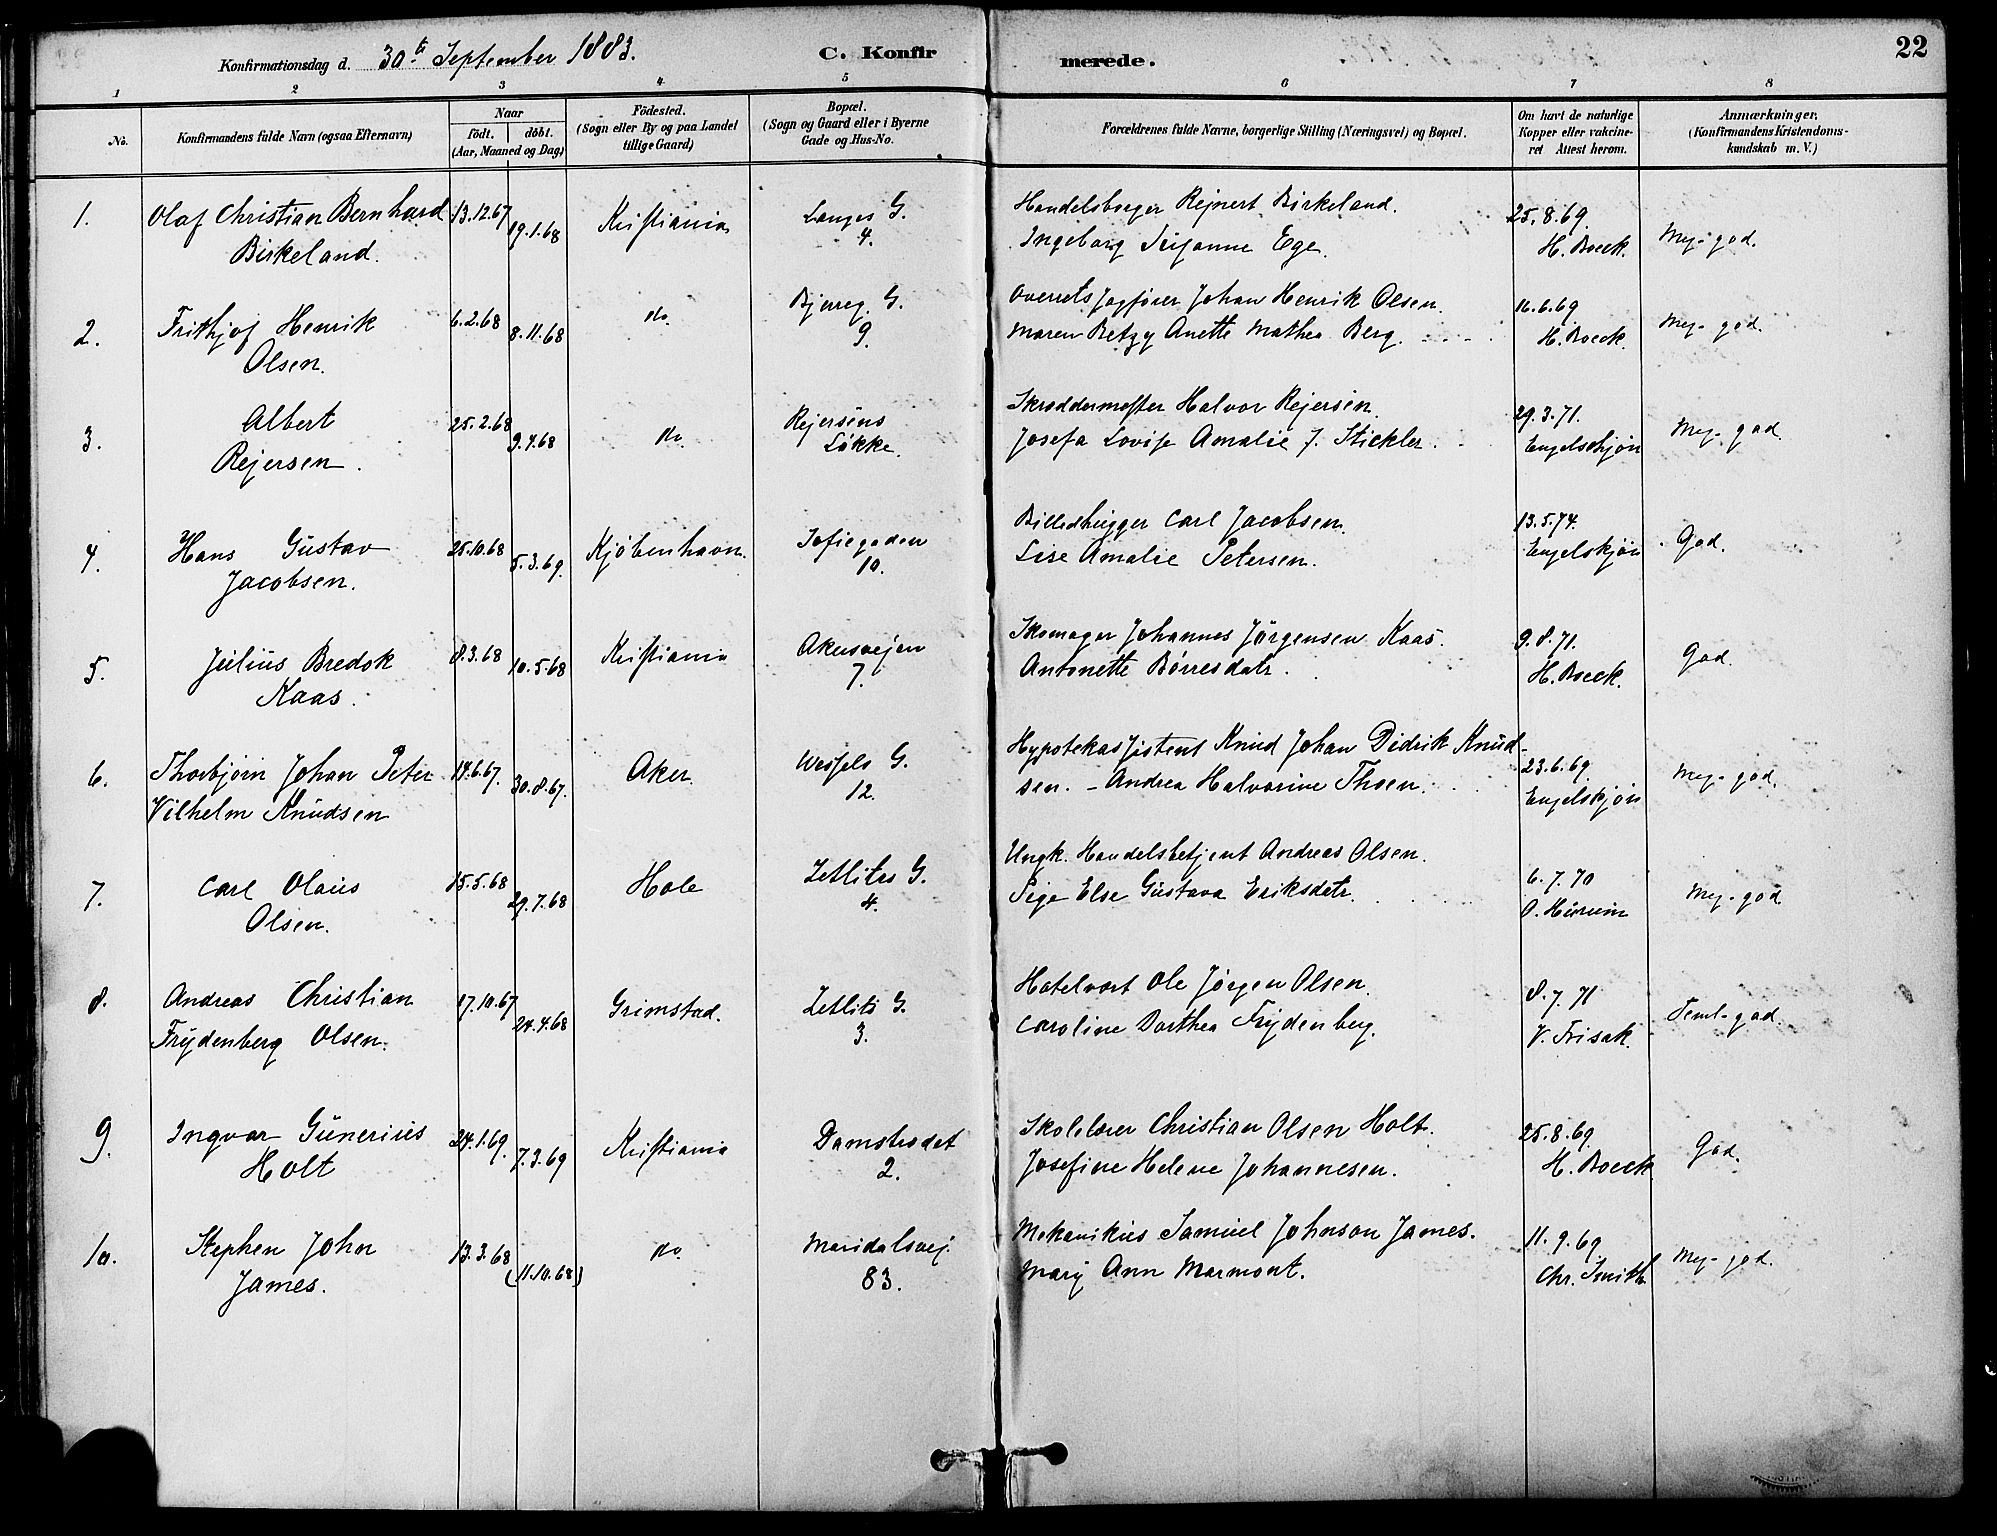 Konfirmationsdag d. 30te September 1883.
C. Konfirmerede.
22
1 2 3 4 5 6 7 8
No.
Konfirmandens fulde Navn (ogsaa Efternavn)
Naar
födt. döbt.
(Aar, Maaned og Dag)
Födested.
(Sogn eller By og paa Landet
tillige Gaard)
Bopæl.
(Sogn og Gaard eller i Byerne
Gade og Hus-No.
Forældrenes fulde Navne, borgerlige Stilling (Næringsvei) og Bopæl.
Om havt de naturlige
Kopper eller vakcine-
ret Attest herom.
Anmærkninger,
(Konfirmandens Kristendoms-
kundskab m. V.)
1. Olaf Christian Bernhard 13.12.67 19.1.68 Kristiania Langes G. Handelsborger Rejnert Birkeland. 25.8.69.
Birkeland. 4. Ingeborg Susanne Ege. H. Boeck. Meg. god.
2. Frithjof Henrik 6.2.68 8.11.68 do. Bjerreg. G. Overretssagfører Johan Henrik Olsen. 16.6.69
Olsen. 9. Maren Betzy Anette Mathea Berg. H. Boeck. Meg. god.
3. Albert 25.2.68 9.4.68 do. Rejersens Skreddermester Halvor Rejersen. 29.3.71.
Rejersen. Løkke. Josefa Lovise Amalie J. Stickler. Engelschjøn Meg. god.
4. Hans Gustav 25.10.68 5.3.69. Kjøbenhavn. Sofiegaden Billedhugger Carl Jacobsen. 13.5.74.
Jacobsen. 10. Lise Amalie Petersen. Engelskjøn God.
5. Julius Bredok 8.3.68 10.5.68 Kristiania Akersvejen Skomager Johannes Jörgensen Kaas. 9.8.71.
Kaas. 7. Antonette Børresdatr. H. Boeck. God.
6. Thorbjørn Johan Peter 14.6.67. 30.8.67. Aker. Wessels G. Hypotekassistent Knud Johan Didrik Knud-
Vilhelm Knudsen 12. sen. - Andrea Halvorine Thoen. 23.6.69. Engelskjøn Meg. god.
7. Carl Olaus 15.5.68 29.7.68 Hole Zetlitz G. Ungk. Handelsbetjent Andreas Olsen. 6.7.70
Olsen. 4. Pige Else Gustava Eriksdatr. O. Hurum Meg. god
8. Andreas Christian 17.10.67 24.4.68 Grimstad. Zetlits G. Hotelvært Ole Jørgen Olsen. 8.7.71
Frydenberg Olsen. 3. Caroline Dorthea Frydenberg. V. Frisak. Teml. god.
9. Ingvar Gunerius 24.1.69. 7.3.69 Kristiania Damstredet Skolelærer Christian Olsen Holt. 25.8.69.
Holt 2. Josefine Helene Johannesen. H. Boeck God.
10. Stephen John 13.3.68 (11.10.68) do. Maridalsvej. Mekanikus Samuel Johnson James. 11.9.69.
James. 83. Mary Ann Marmont. Chr. Smith. Meg. god.